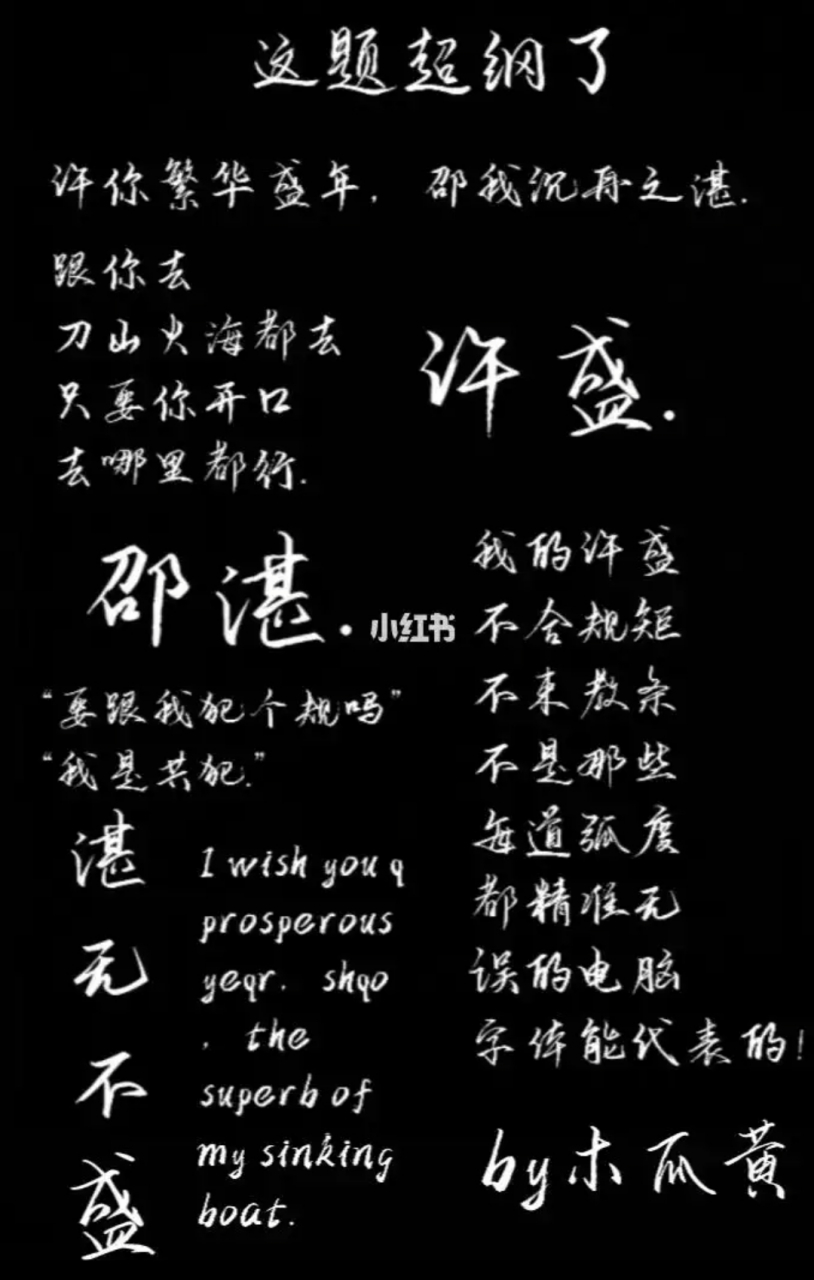 这题超纲了
许你繁华盛年，邵我沉舟之湛.
跟你去
刀山火海都去
只要你开口
去哪里都行.
许盛.
邵湛.
小红书
“要跟我犯个规吗”
“我是共犯.”
我的许盛
不合规矩
不束教条
不是那些
每道弧度
都精准无
误的电脑
字体能代表的!
湛
无
不
盛
I wish you q
prosperous
yeqr. shqo
, the
superb of
my sinking
boat.
by木瓜黄